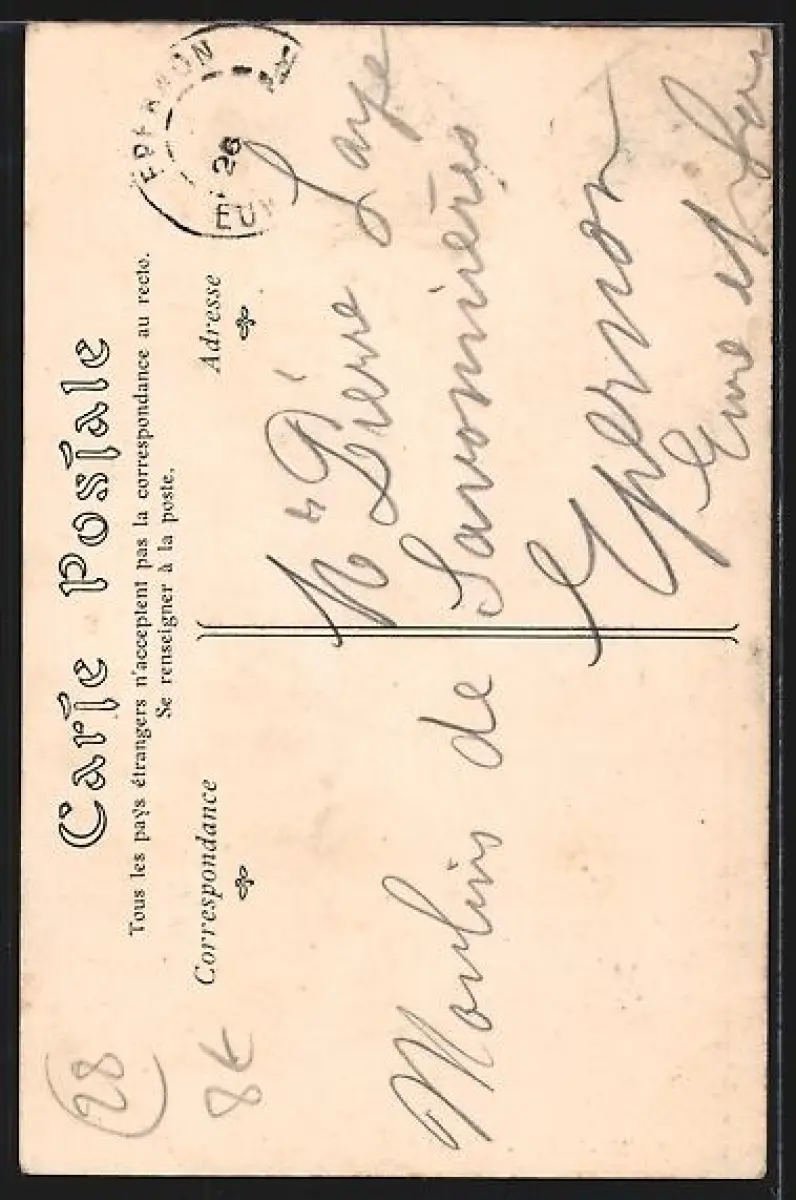 Carte Postale
Tous les pays étrangers n'acceptent pas la correspondance au recto.
Se renseigner à la poste.
Correspondance
Adresse
EPERNON
26
EU
28
8€
Mr Pierre Laye
Moulin de Savonnières
Epernon
Eure et Loir